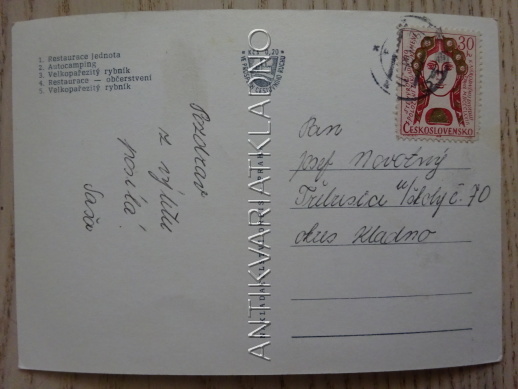 1. Restaurace jednota
2. Autocamping
3. Velkopařezitý rybník
4. Restaurace — občerstvení
5. Velkopařezitý rybník
Pozdrav
z výletu
posílá
Saša
ANTIKVARIATKLADNO
30
ČESKOSLOVENSKO
Pan
Josef Novotný
Třebusice u/školy č. 70
okres Kladno